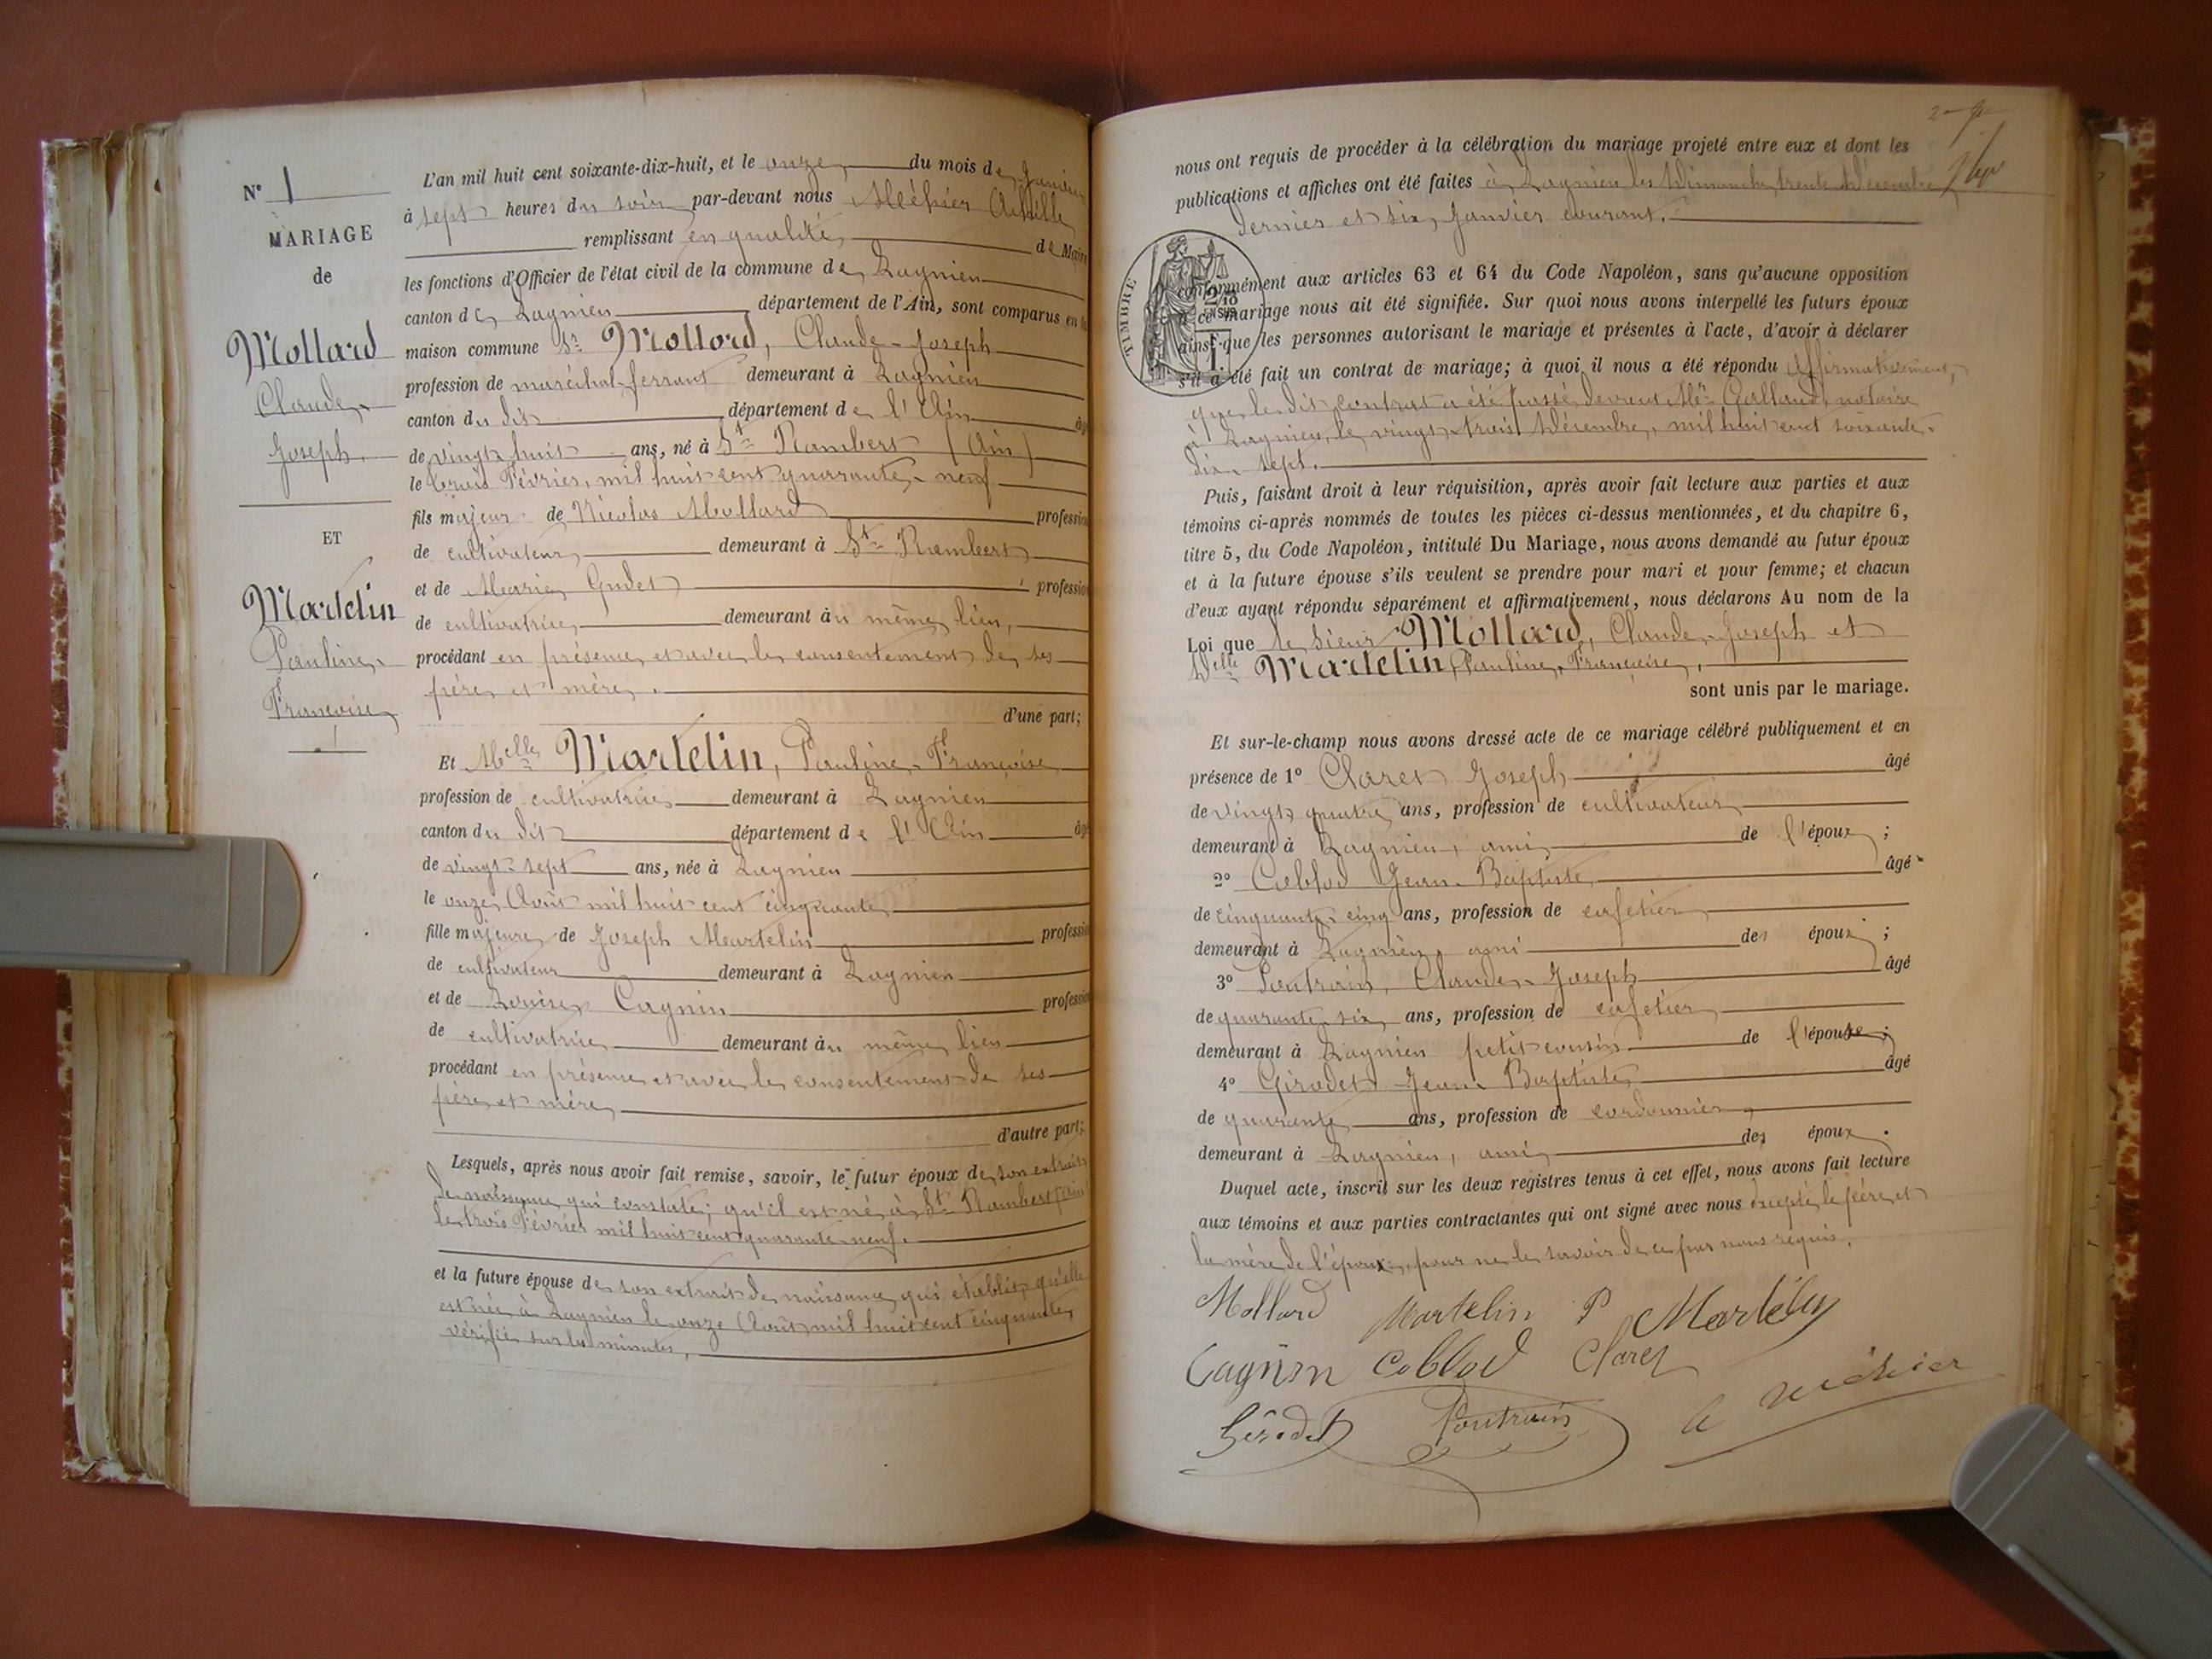 N° 1
MARIAGE
de
Mollard
Claude-
Joseph.
ET
Martelin
Pauline-
Françoise
L'an mil huit cent soixante-dix-huit, et le onze du mois de Janvier
à sept heures du soir par-devant nous Méhier Achille
remplissant en qualité de Maire
les fonctions d'Officier de l'état civil de la commune de Lagnieu
canton de Lagnieu département de l'Ain, sont comparus en la
maison commune Sr Mollard, Claude-Joseph
profession de maréchal-ferrant demeurant à Lagnieu
canton du dit département de l'Ain âgé
de vingt huit ans, né à St Rambert (Ain)
le trois Février, mil huit cent quarante-neuf
fils majeur de Nicolas Mollard profession
de cultivateur demeurant à St Rambert
et de Marie Gudet profession
de cultivatrice demeurant au même lieu,
procédant en présence et avec le consentement de ses
père et mère.
d'une part;
Et Melle Martelin, Pauline-Françoise
profession de cultivatrice demeurant à Lagnieu
canton du dit département de l'Ain âgé
de vingt-sept ans, née à Lagnieu
le onze Août mil huit cent cinquante
fille majeure de Joseph Martelin profession
de cultivateur demeurant à Lagnieu
et de Louise Cagnin profession
de cultivatrice demeurant au même lieu
procédant en présence et avec le consentement de ses
père et mère
d'autre part;
Lesquels, après nous avoir fait remise, savoir, le futur époux de son extrait
de naissance qui constate, qu'il est né à St Rambert (Ain)
le trois Février mil huit cent quarante-neuf.
et la future épouse de son extrait de naissance, qui établit, qu'elle
est née à Lagnieu le onze Août mil huit cent cinquante,
vérifié sur la minute,
nous ont requis de procéder à la célébration du mariage projeté entre eux et dont les
publications et affiches ont été faites à Lagnieu les Dimanches trente Décembre
dernier et six Janvier courant.
TIMBRE
2/10
EN SUS
conformément aux articles 63 et 64 du Code Napoléon, sans qu'aucune opposition
à ce mariage nous ait été signifiée. Sur quoi nous avons interpellé les futurs époux
ainsi que les personnes autorisant le mariage et présentes à l'acte, d'avoir à déclarer
s'il a été fait un contrat de mariage; à quoi il nous a été répondu Affirmativement,
que le dit contrat a été passé devant Me Galland, notaire
à Lagnieu, le vingt-trois Décembre, mil huit cent soixante-
dix-sept.
Puis, faisant droit à leur réquisition, après avoir fait lecture aux parties et aux
témoins ci-après nommés de toutes les pièces ci-dessus mentionnées, et du chapitre 6,
titre 5, du Code Napoléon, intitulé Du Mariage, nous avons demandé au futur époux
et à la future épouse s'ils veulent se prendre pour mari et pour femme; et chacun
d'eux ayant répondu séparément et affirmativement, nous déclarons Au nom de la
Loi que le sieur Mollard, Claude-Joseph et
Delle Martelin, Pauline-Françoise,
sont unis par le mariage.
Et sur-le-champ nous avons dressé acte de ce mariage célébré publiquement et en
présence de 1° Claret Joseph âgé
de vingt quatre ans, profession de cultivateur
demeurant à Lagnieu, ami de l'époux ;
2° Coblod Jean-Baptiste âgé
de cinquante-cinq ans, profession de cafetier
demeurant à Lagnieu, ami des époux ;
3° Poutrain, Claude-Joseph âgé
de quarante-six ans, profession de cafetier
demeurant à Lagnieu petit cousin de l'épouse ;
4° Girodet Jean-Baptiste âgé
de quarante ans, profession de cordonnier,
demeurant à Lagnieu, ami des époux.
Duquel acte, inscrit sur les deux registres tenus à cet effet, nous avons fait lecture
aux témoins et aux parties contractantes qui ont signé avec nous excepté le père et
la mère de l'époux, pour ne le savoir de ce par nous requis.
Mollard Martelin P Martelin
Cagnin Coblod Claret
Girodet Poutrain A Méhier